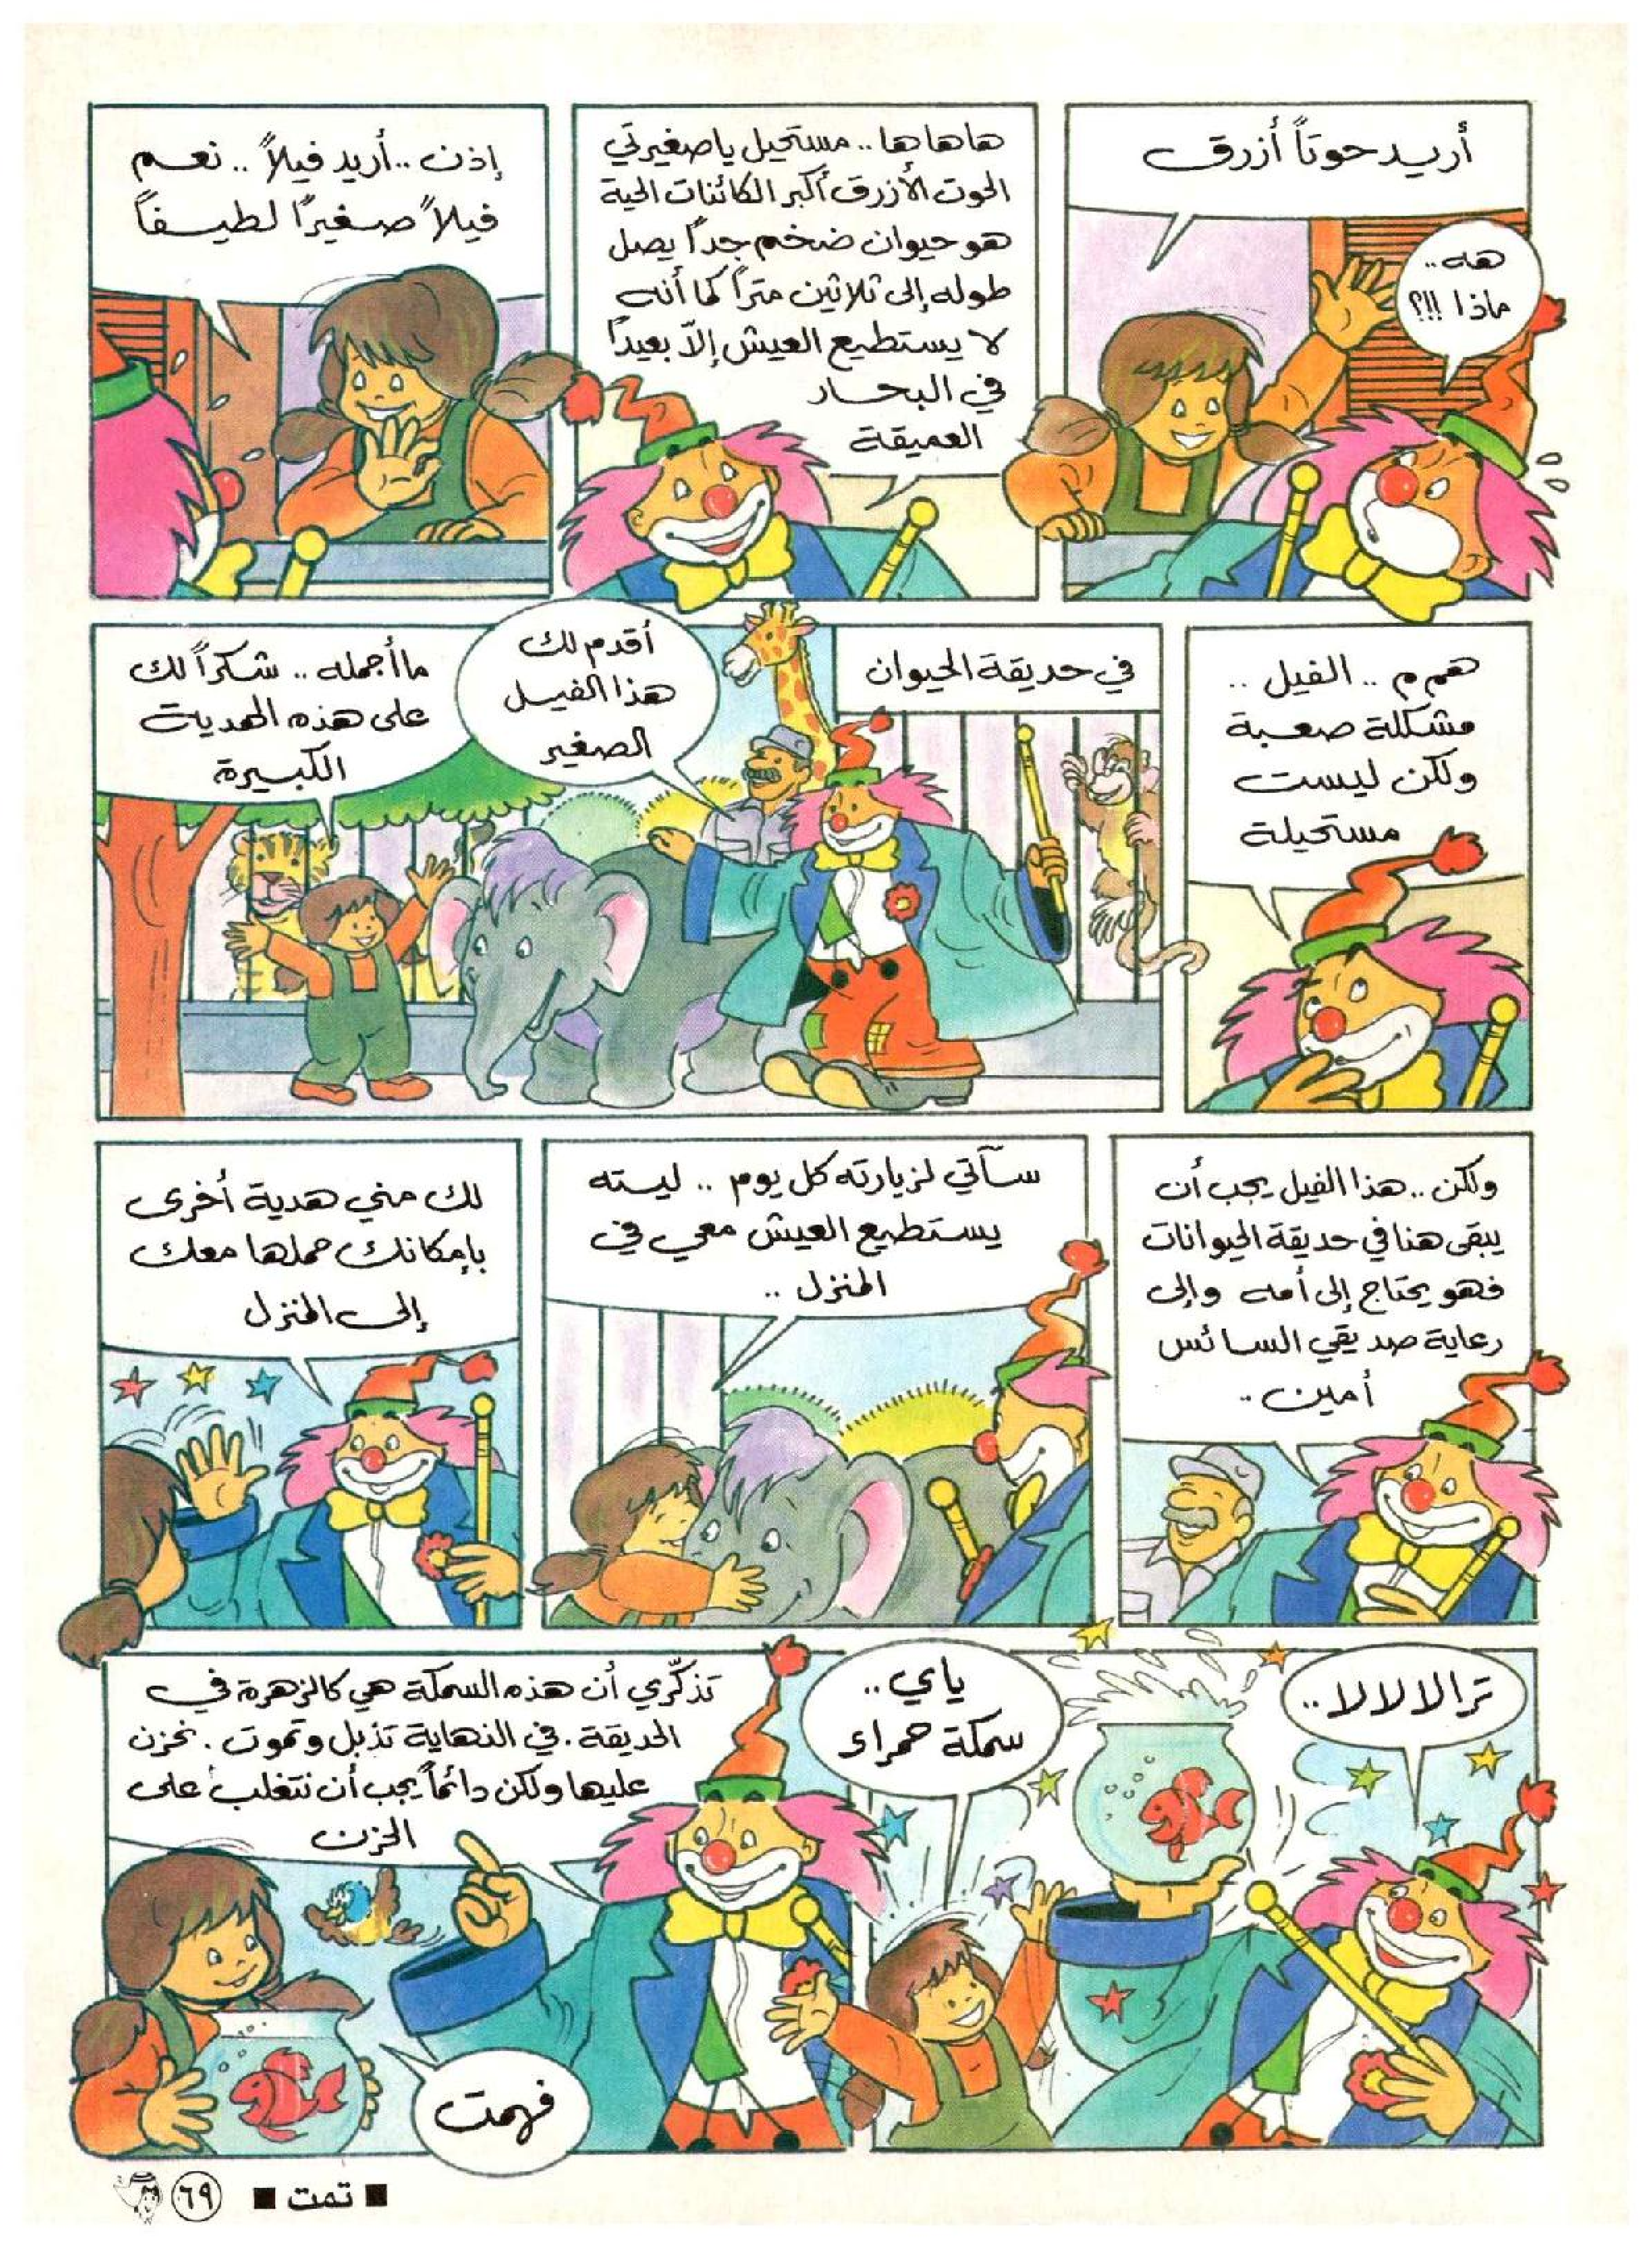 أريد حوتاً أزرق
هه..
ماذا !!؟
هاهاها.. مستحيل ياصغيرتي
الحوت الأزرق أكبر الكائنات الحية
هو حيوان ضخم جداً يصل
طوله إلى ثلاثين متراً كما أنه
لا يستطيع العيش إلاّ بعيداً
في البحار
العميقة
إذن.. أريد فيلاً.. نعم
فيلاً صغيراً لطيفاً
همم م.. الفيل..
مشكلة صعبة
ولكن ليست
مستحيلة
في حديقة الحيوان
أقدم لك
هذا الفيل
الصغير
ماأجمله.. شكراً لك
على هذه الهدية
الكبيرة
ولكن.. هذا الفيل يجب أن
يبقى هنا في حديقة الحيوانات
فهو يحتاج إلى أمه وإلى
رعاية صديقي السائس
أمين..
سآتي لزيارته كل يوم.. ليته
يستطيع العيش معي في
المنزل..
لك مني هدية أخرى
بإمكانك حملها معك
إلى المنزل
ترالالالا..
ياي..
سمكة حمراء
تذكّري أن هذه السمكة هي كالزهرة في
الحديقة. في النهاية تذبل وتموت. نحزن
عليها ولكن دائماً يجب أن نتغلب على
الحزن
فهمت
■ تمت ■
٦٩